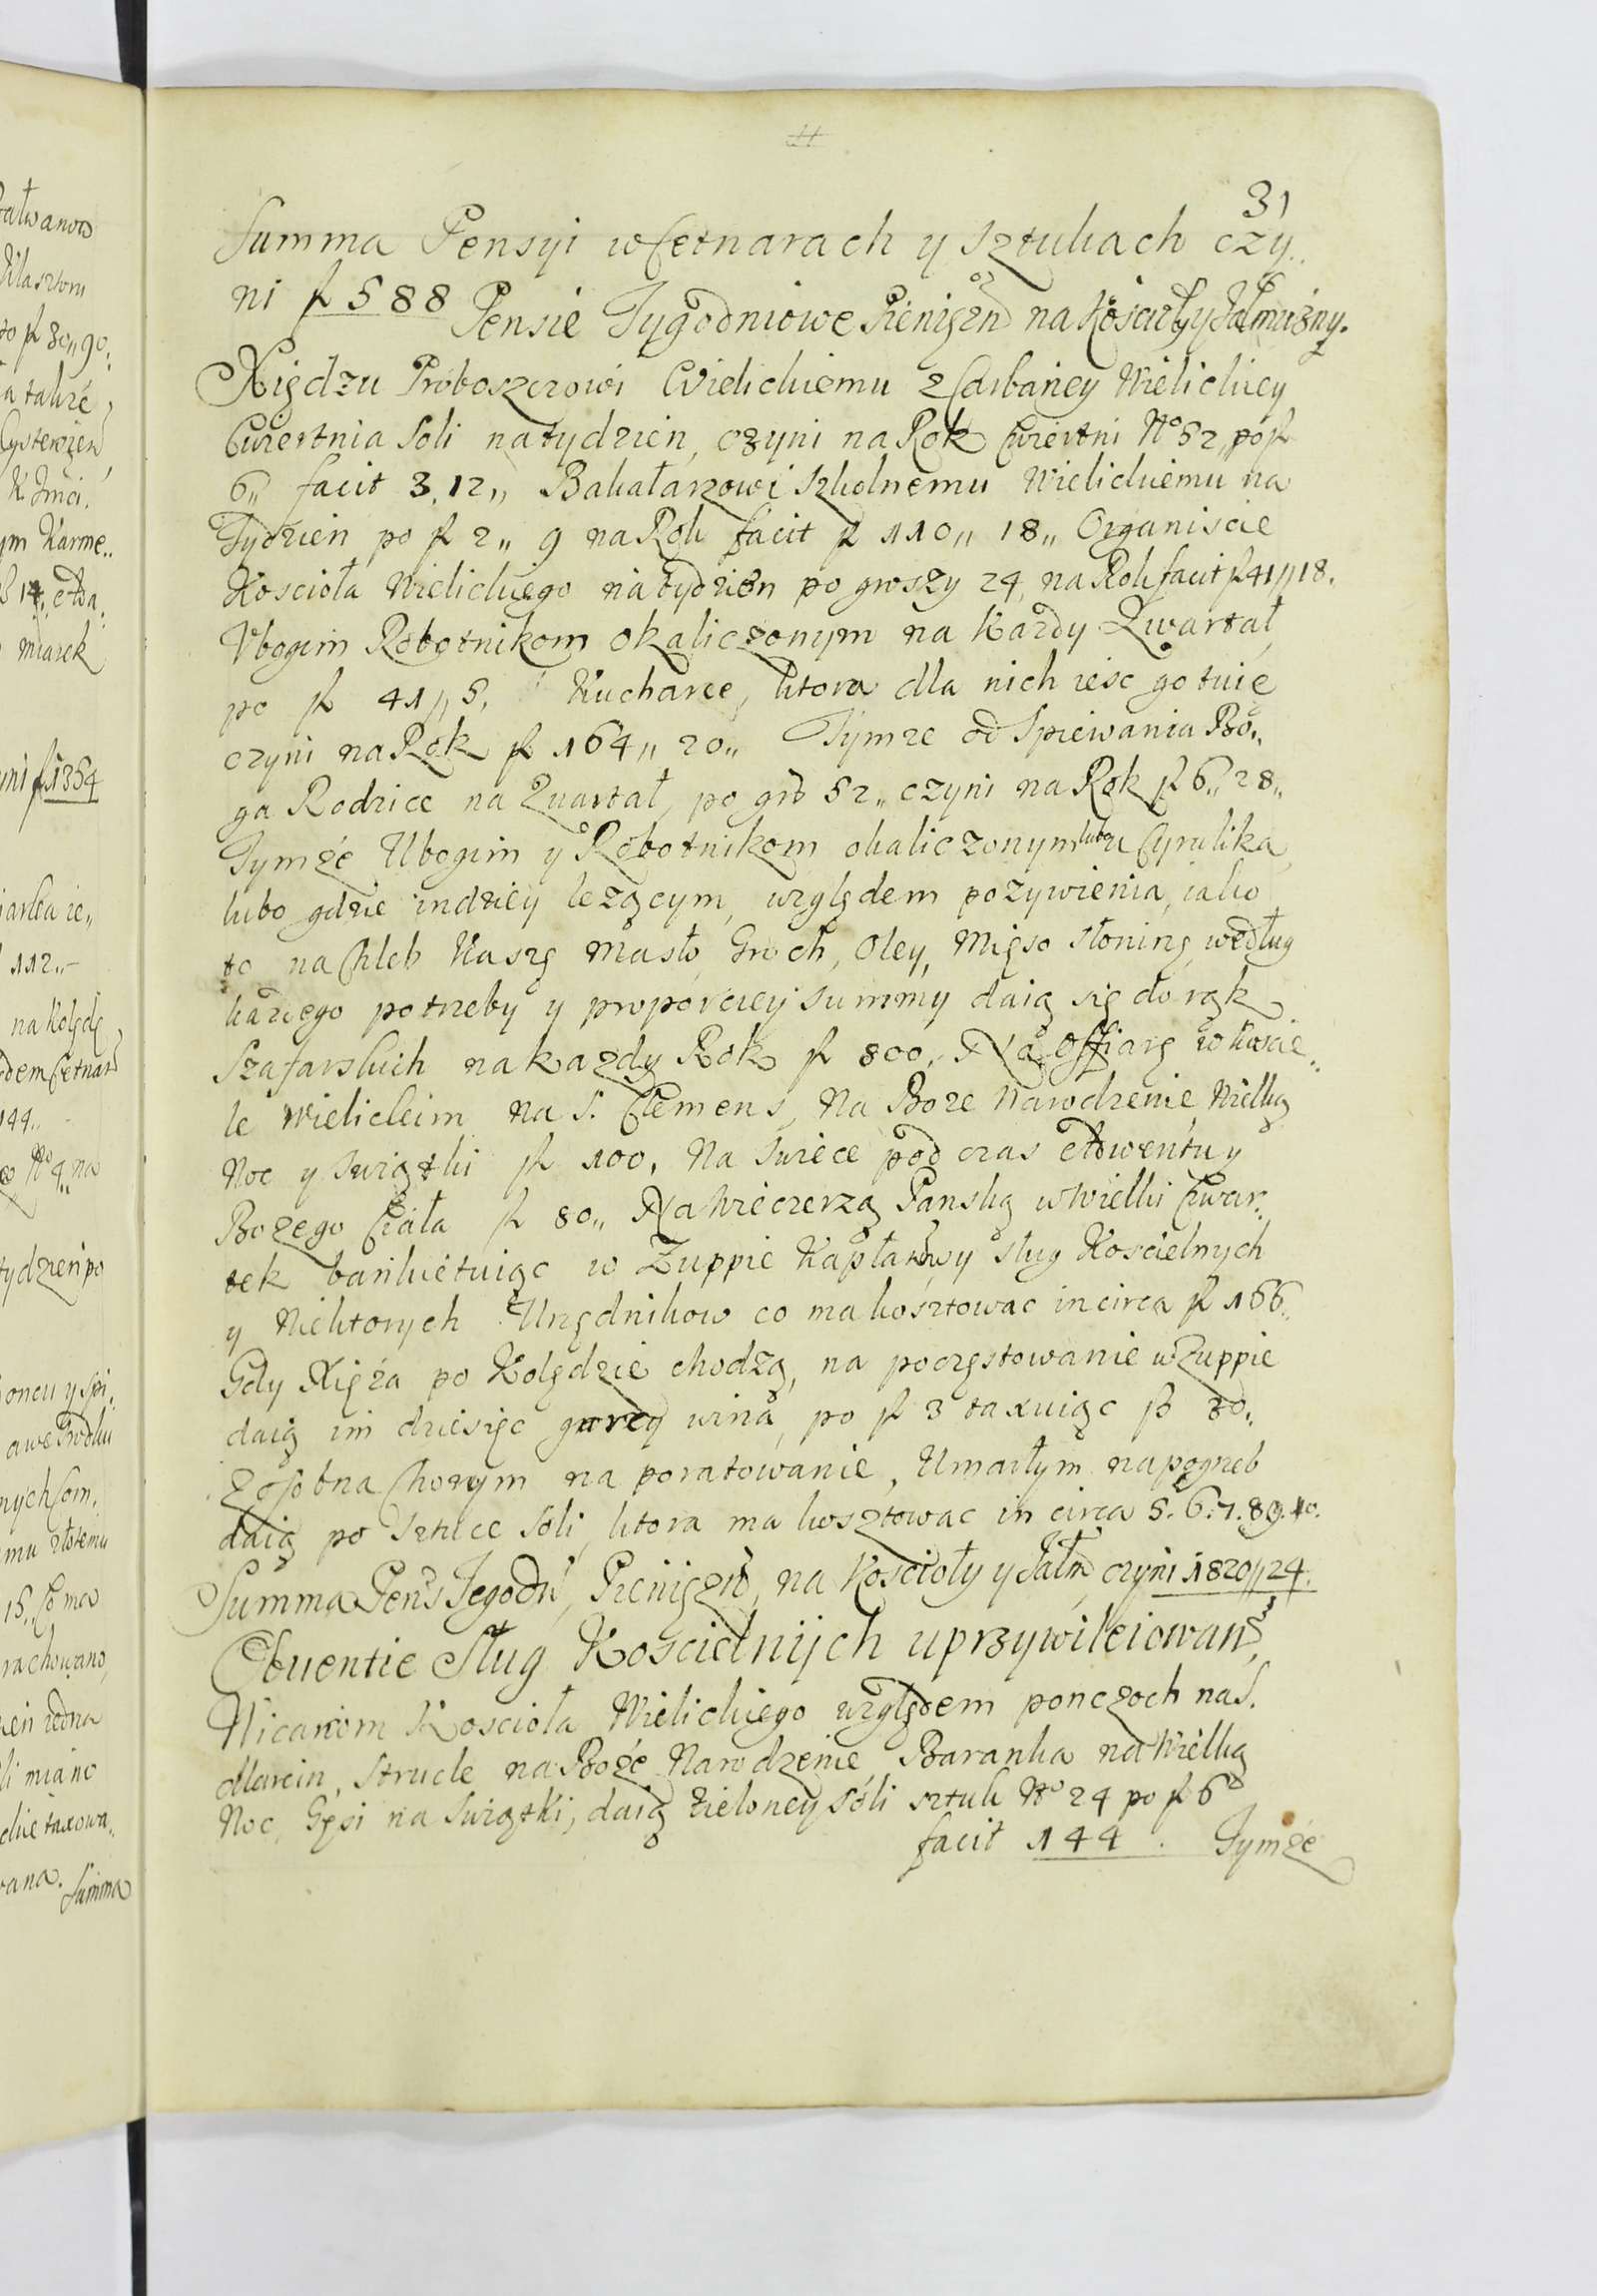 31
Summa Pensyi w Cetnarach y Sztukach czy„
ni f 588
Pensie Tygodniowe Pieniężn na Koscioły y Jałmużny.
Xiędzu Proboszczowi Wielickiemu z Carbaney Wielickiey
Cwiertnia Soli na tydzien, czyni na Rok Cwiertni No 52, po f
6„ facit 3.12„ Bakałarzowi Szkolnemu Wielickiemu na
Tydzien po f 2„ 9 na Rok facit f 110„ 18„ Organiscie
Koscioła Wielickiego na tydzien po groszy 24, na Rok facit f 41„18.
Vbogim Robotnikom okaliczonym na Kazdy Kwartał
po f 41„5, Kucharce, ktora dla nich iesc gotuie
czyni na Rok f 164„ 20„ Tymze od Spiewania Bo„
ga Rodzice na Quartał, po gro 52„ czyni na Rok f 6„ 28„
Tymże Ubogim y Robotnikom okaliczonym lubo u Cyrulika
lubo gdzie indziey lezącym, względem pozywienia, iako
to na Chleb Kaszę Masło, Groch, Oley, Mięso Słoninę, według
kazdego potrzeby y proporcicy summy daią się do rąk
Szafarskich na kazdy Rok f 800, Na Offiarę w Koscie„
le Wielickim na S. Clemens, Na Boze Narodzenie Wielką
Noc y Swiątki f 100, Na Swiece pod czas Adwentu y
Bozego Ciała f 80„ Na Wieczerzą Panską w Wielki Czwar„
tek bankietuiąc w Zuppie Kapłanow y sług Koscielnych
y Niektorych Urzędnikow co ma kosztowac in circa f 166„
Gdy Xięża po Kolędzie chodzą, na poczęstowanie w Zuppie
daią im dziesięc garcy wina, po f 3 taxuiąc f 30„
Zosobna Chorym na poratowanie, Umarłym na pogrzeb
daią po Sztuce Soli, ktora ma kosztowac in circa 5. 6. 7. 8 9. 10.
Summa Pens Tegodn, Pieniężn, na Koscioły y Jałm, czyni 1820„24.
Obuentie Sług Koscielnÿch uprzywileiowan,
Wicariom Koscioła Wielickiego względem ponczoch na S.
Marcin, Strucle na Boże Narodzenie, Baranka na Wielką
Noc, Gęsi na Swiątki, daią Zieloney Soli sztuk No 24 po f 6
facit 144. Tymże